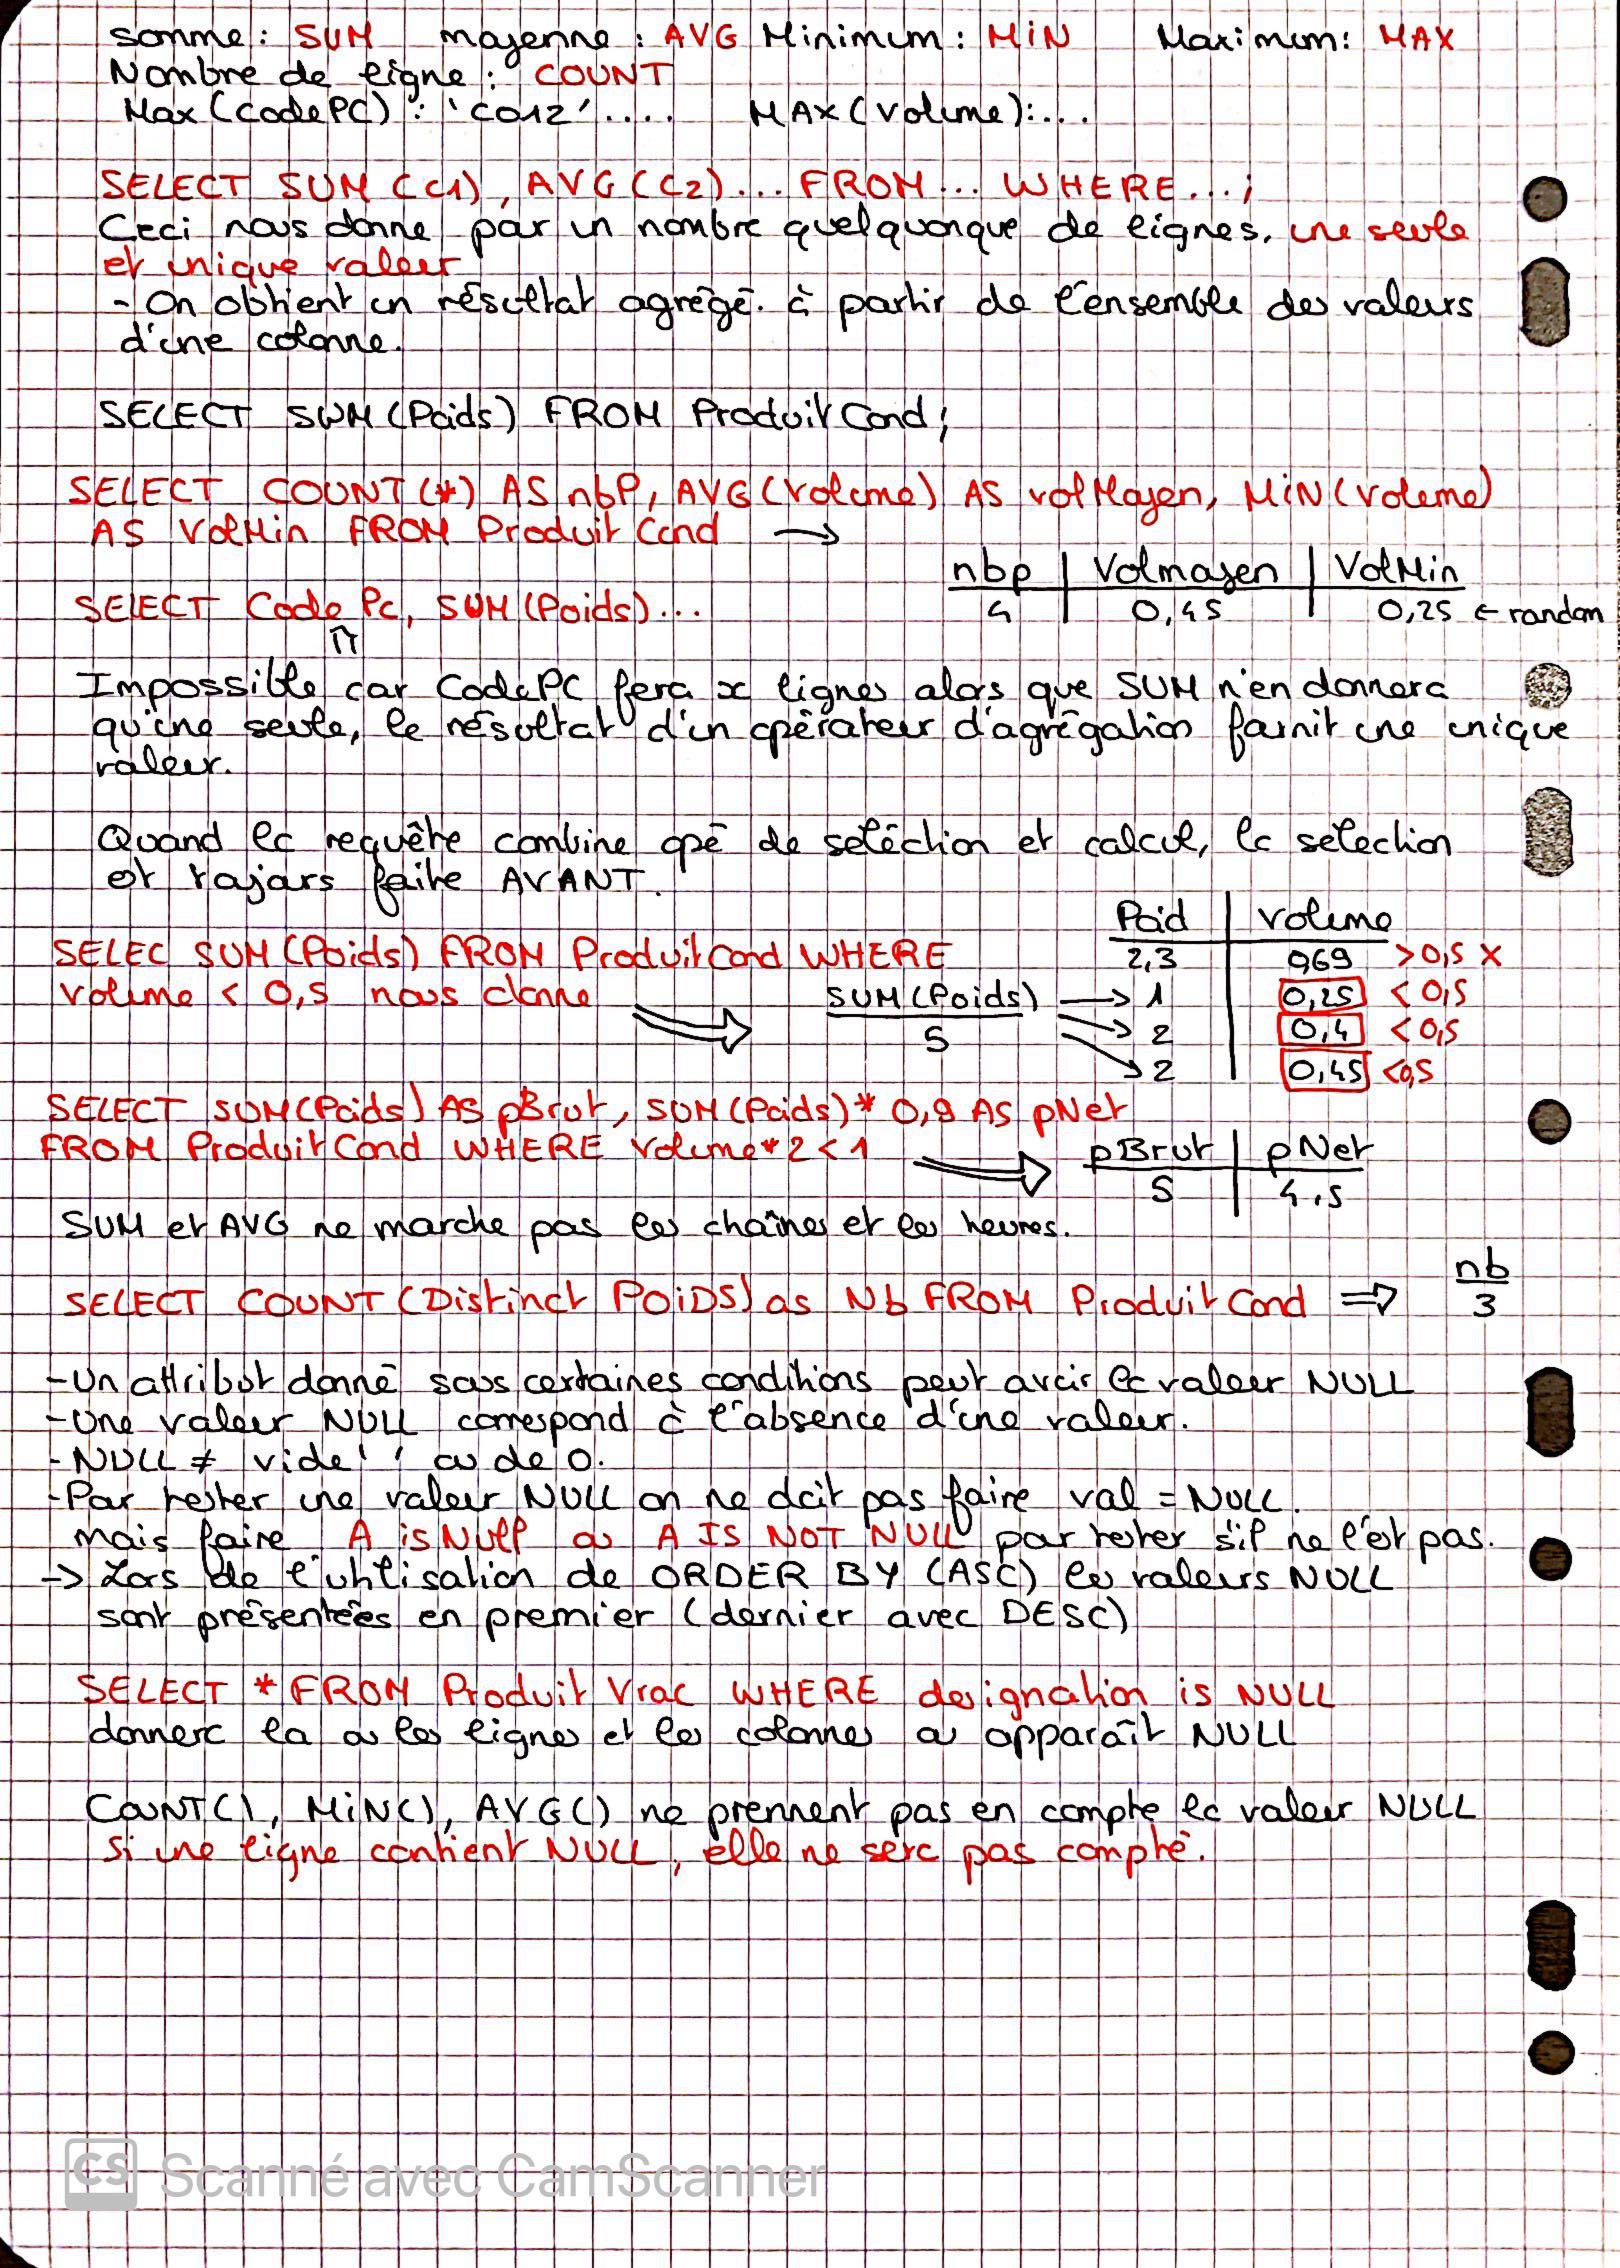 somme : SUM moyenne : AVG Minimum : MiN Maximum : MAX
Nombre de ligne : COUNT
Max(codePC) : 'C012'.... MAX(Volume):...
SELECT SUM (C1), AVG(C2)... FROM... WHERE...;
Ceci nous donne, par un nombre quelquonque de lignes, une seule
et unique valeur
- On obtient un résultat agrégé. à partir de l'ensemble des valeurs
d'une colonne.
SELECT SUM(Poids) FROM ProduitCond;
SELECT COUNT(*) AS nbP, AVG(Volume) AS volMoyen, MiN(Volume)
AS VolMin FROM ProduitCond →
nbp | Volmoyen | VolMin
4 | 0,45 | 0,25 ← random
SELECT Code Pc, SUM(Poids)...
⇑
Impossible car CodePC fera x lignes alors que SUM n'en donnera
qu'une seule, le résultat d'un opérateur d'agrégation fournit une unique
valeur.
Quand la requête combine opé de séléction et calcul, la sélection
est toujours faite AVANT.
Poid | Volume
SELEC SUM(Poids) FROM ProduitCond WHERE
2,3 | 0,69 > 0,5 X
Volume < 0,5 nous donne ⇒ SUM(Poids) → 1 | 0,25 < 0,5
5 → 2 | 0,4 < 0,5
→ 2 | 0,45 < 0,5
SELECT SUM(Poids) AS pBrut, SUM(Poids)* 0,9 AS pNet
FROM ProduitCond WHERE Volume*2<1 ⇒ pBrut | pNet
5 | 4.5
SUM et AVG ne marche pas les chaînes et les heures.
SELECT COUNT(Distinct POiDS) as Nb FROM ProduitCond ⇒ nb
3
- Un attribut donné sous certaines conditions peut avoir la valeur NULL
- Une valeur NULL correspond à l'absence d'une valeur.
- NULL ≠ vide ' ' ou de 0.
- Pour tester une valeur NULL on ne doit pas faire val = NULL.
mais faire A is Null ou A IS NOT NULL pour tester s'il ne l'est pas.
→ Lors de l'utilisation de ORDER BY (ASC) les valeurs NULL
sont présentées en premier (dernier avec DESC)
SELECT * FROM Produit Vrac WHERE designation is NULL
donnera la ou les lignes et les colonnes où apparaît NULL
COUNT(), MiN(), AVG() ne prennent pas en compte la valeur NULL
Si une ligne contient NULL, elle ne sera pas compté.
CS Scanné avec CamScanner